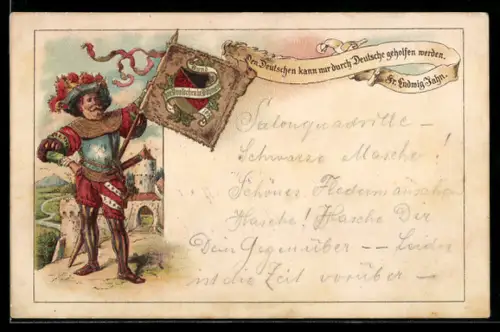 Den Deutschen kann nur durch Deutsche geholfen werden.
Fr. Ludwig Jahn.
Salonquadrille –
Schwarze Masche!
Schönes Fledermäuschen
Hasche! Hasche Dir
Dein Gegenüber – – Leider
ist die Zeit vorüber –